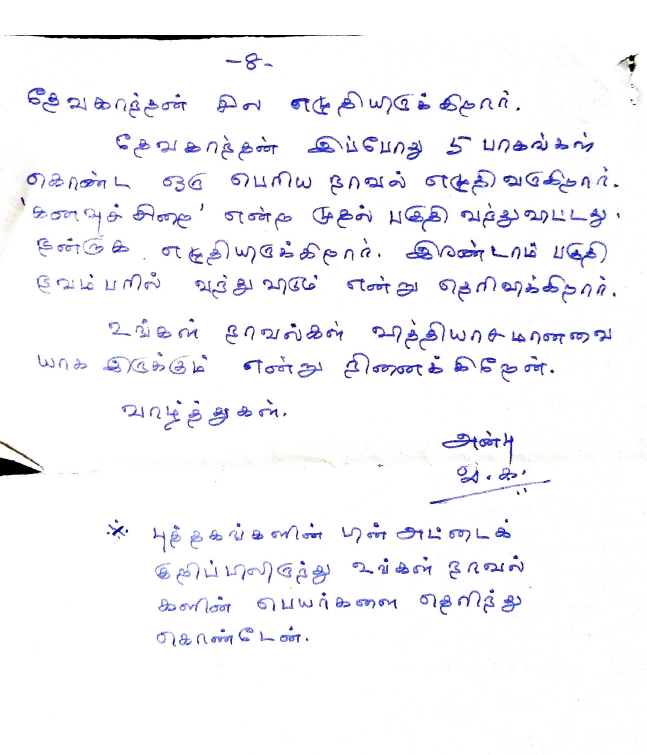 -8-
தேவகாந்தன் சில எழுதியிருக்கிறார்.
தேவகாந்தன் இப்போது 5 பாகங்கள்
கொண்ட ஒரு பெரிய நாவல் எழுதிவருகிறார்.
'கனவுச் சிறை' என்ற முதல் பகுதி வந்துவிட்டது.
நன்றாக எழுதியிருக்கிறார். இரண்டாம் பகுதி
நவம்பரில் வந்து விடும் என்று தெரிவிக்கிறார்.
உங்கள் நாவல்கள் வித்தியாசமானவை
யாக இருக்கும் என்று நினைக்கிறேன்.
வாழ்த்துகள்.
அன்பு
வ.க.
* புத்தகங்களின் பின் அட்டைக்
குறிப்பிலிருந்து உங்கள் நாவல்
களின் பெயர்களை தெரிந்து
கொண்டேன்.